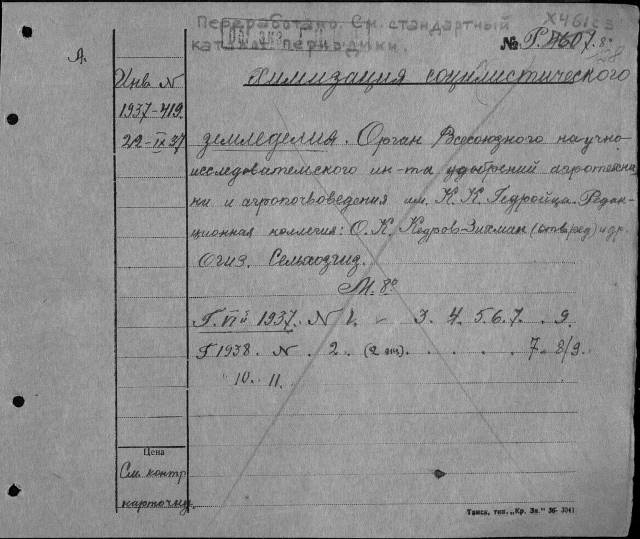 Переработано. См. стандартный
каталог периодики.
Х461сз
№ Г.4607.8°
А.
Инв N
1937-419.
22-IX 37
Химизация социлистического
земледелия. Орган Всесоюзного научно-
исследовательского ин-та удобрений агротехни
ки и агропочвоведения им. К. К. Гедройца. Редак-
ционная коллегия: О. К. Кедров-Зихман (отв. ред) и др.
Огиз. Сельхозгиз.
М. 8°
Г. VIй 1937. N 1. - 3. 4. 5. 6. 7. . 9.
Г 1938. N. 2. (2 экз). . . . . 7. 8/9.
10. 11.
Цена
См. контр
карточку.
Томск, тип. „Кр. Зн." 36- 3041